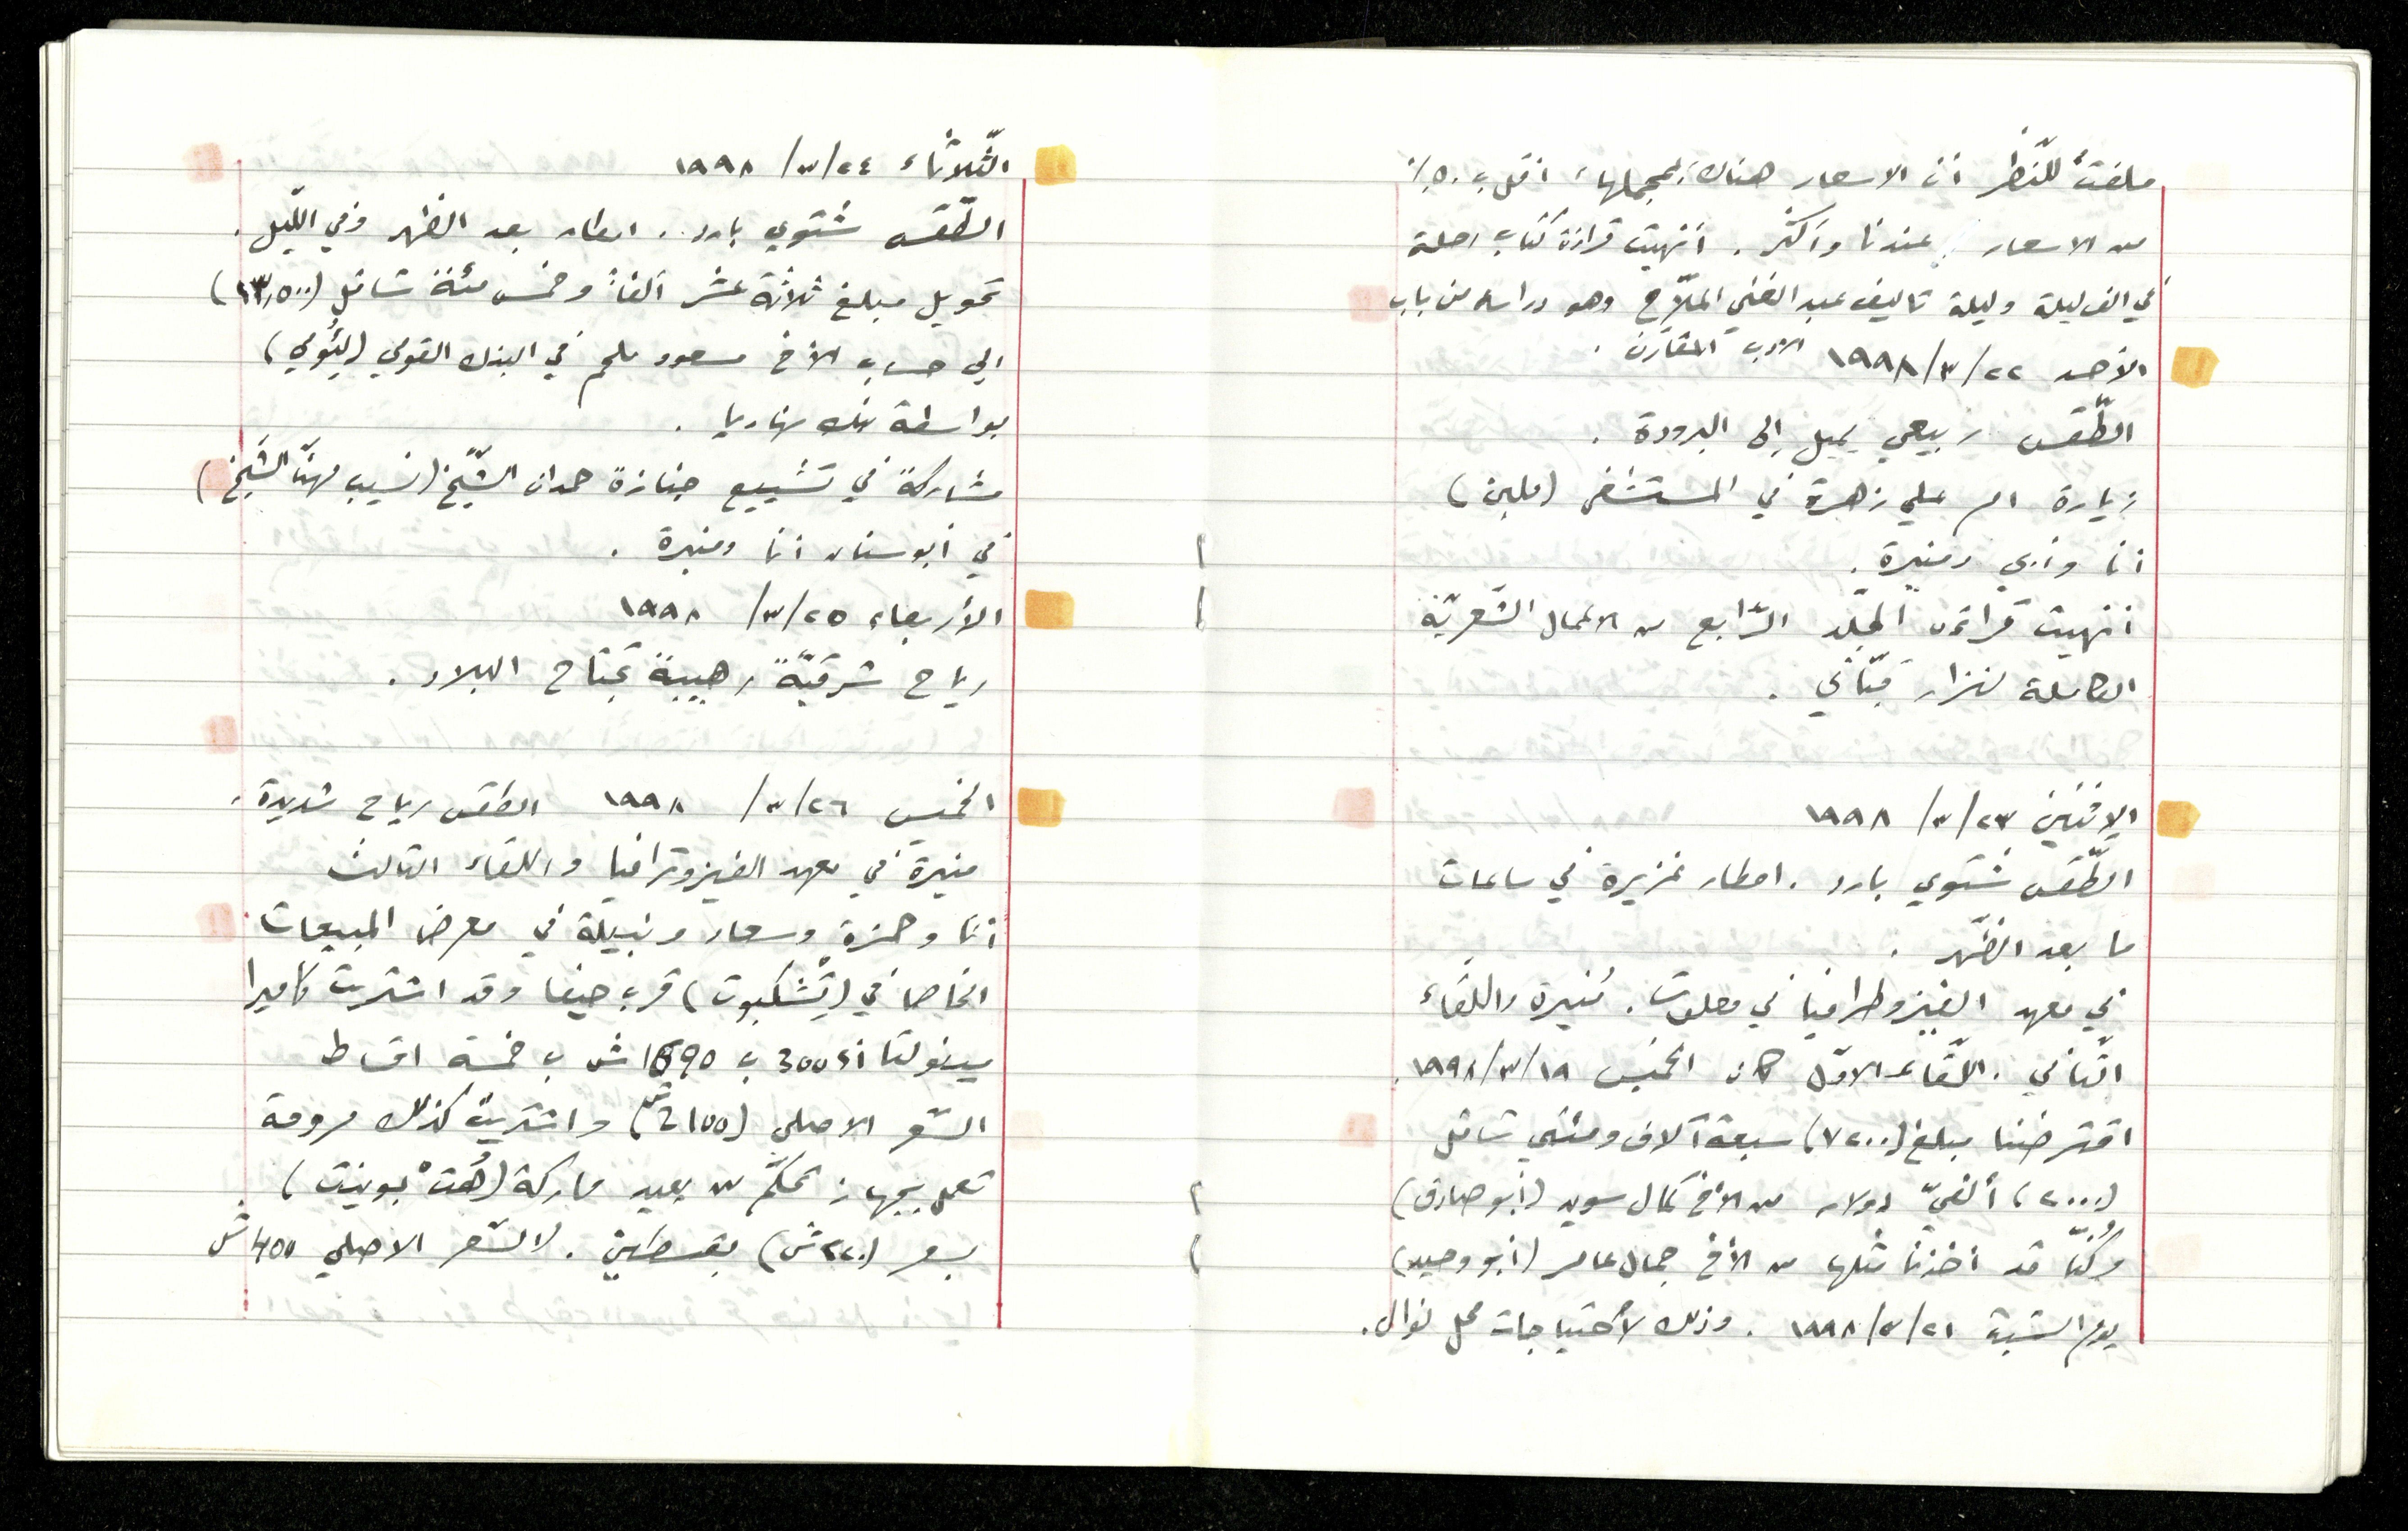 ملفتٌ للنّظر أن الاسعار هناك، بمجملها، اقل ب ٥٠٪
من الاسعار عندنا وأكثر. أنهيت قراءة كتاب رحلة
في الف ليلة وليلة تاليف عبد الغني الملّاح وهو دراسة من باب
الادب المقارن.
الأحد ٢٢/٣/١٩٩٨
الطّقس ربيعي يميل إلى البرودة.
زيارة ام علي زهرة في المستشفى (ملبن)
انا وأبي ومنيرة.
انهيت قراءة المجلّد الرّابع من الاعمال الشّعريّة
الكاملة لنزار قبّاني.
الإثنين ٢٣/٣/١٩٩٨
الطّقس شتوي بارد. امطار غزيرة في ساعات
ما بعد الظّهر.
في معهد الفيزوطرافيا في معلوت. مُنيرة واللّقاء
الثّاني. اللّقاء الأوّل كان الخميس ١٩/٣/١٩٩٨.
اقترضنا مبلغ (٧٢٠٠) سبعة آلاف ومئتي شاقل
(٢٠٠٠) ألفيّ دولار من الأخ كمال سويد (أبو صادق)
وكُنّا قد أخذنا مثلها من الأخ جمال عامر (أبو وحيد)
يوم السّبت ٢١/٣/١٩٩٨. وذلك لأحتياجات محل نوال.
الثّلاثاء ٢٤/٣/١٩٩٨
الطّقس شتوي بارد. امطار بعد الظهر وفي اللّيل.
تحويل مبلغ ثلاثة عشر ألفاً وخمس مئة شاقل (١٣,٥٠٠)
الى حساب الأخ مسعود ملحم في البنك القومي (ليئُومي)
بواسطة بنك نهاريا.
مشاركة في تشييع جنازة حمدان الشّيخ (نسيب مهنّا الشّيخ)
في أبوسنان انا ومنيرة.
الأربعاء ٢٥/٣/١٩٩٨
رياح شرقيّة رهيبة تجتاح البلاد.
الخميس ٢٦/٣/١٩٩٨ الطقس رياح شديدة.
منيرة في معهد الفيزوترافيا واللقاء الثالث
أنا وحمزة وسعاد ونبيلة في معرض المبيعات
الخاصا في (تشكبوت) قرب حيفا وقد اشتريت كاميرا
مينولتا 300si ب 1690 ش ب خمسة اقساط
السّعر الاصلي (2100ش) واشتريت كذلك مروحة
تعمل بجهاز تحكّم من بعيد ماركة (هُتْ بوينت)
بسعر (٢٢٠ش) بقسطين. السّعر الاصلي 400ش